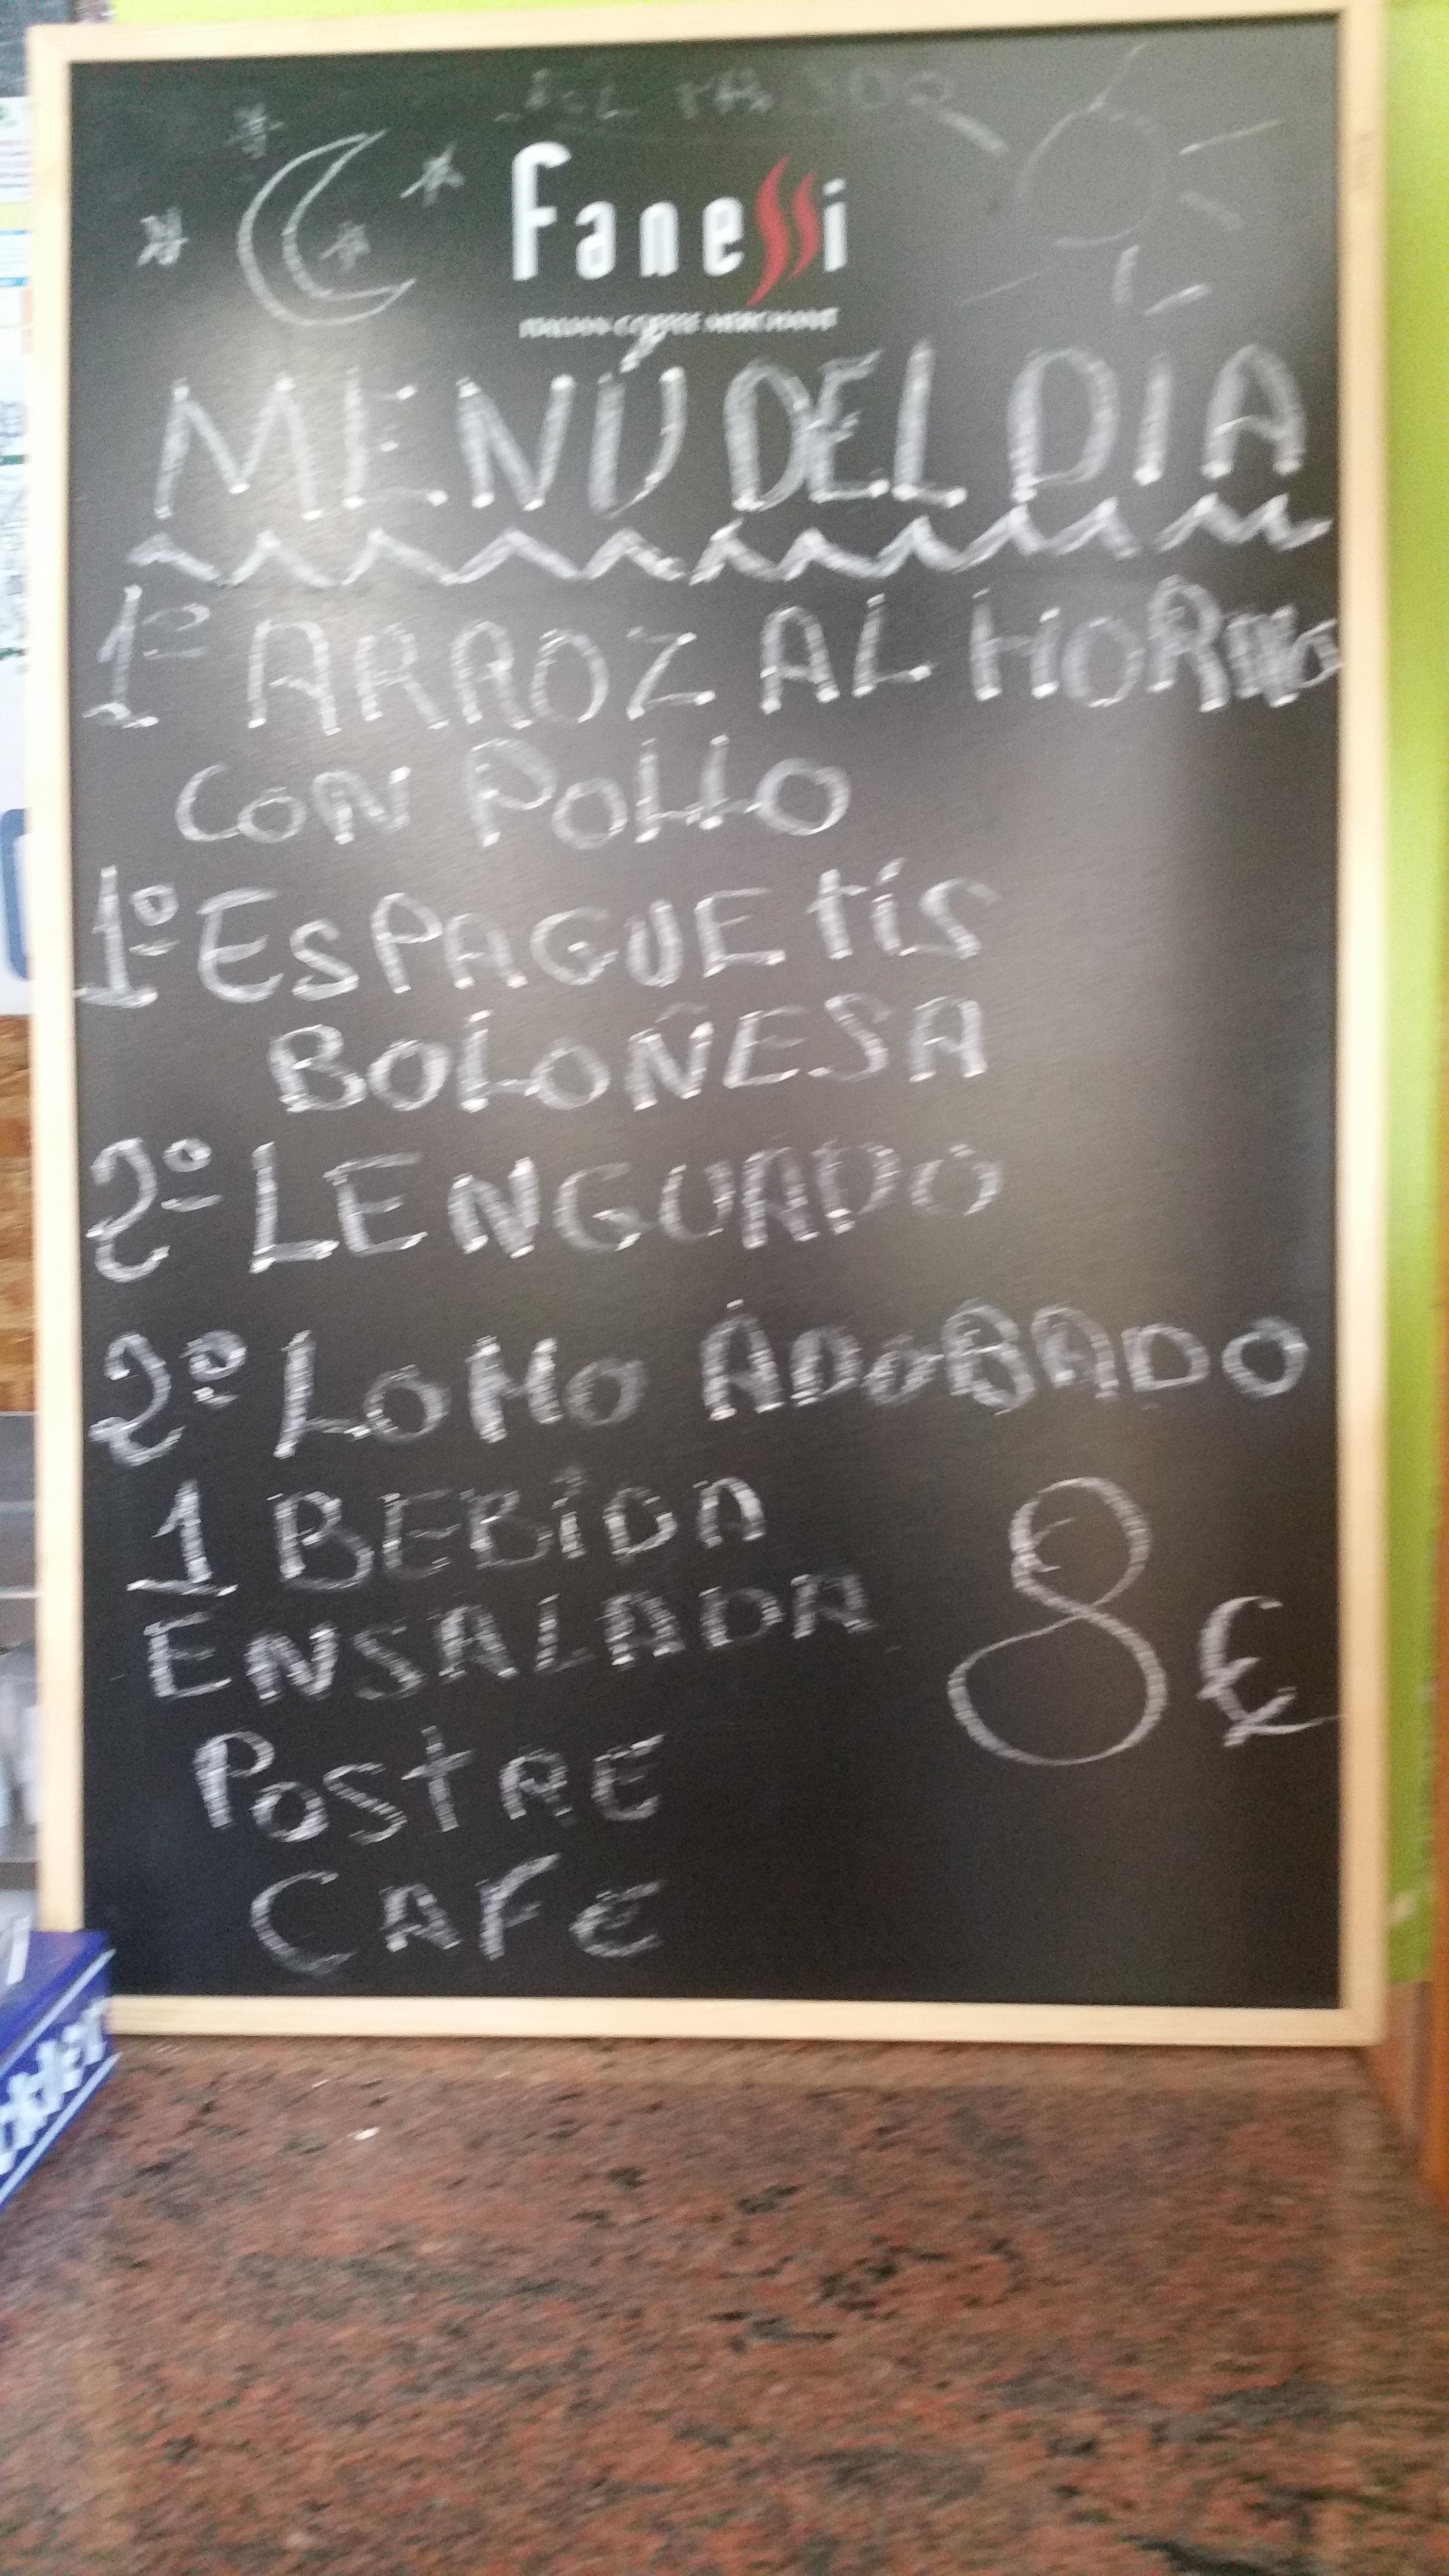 Fanessi
ITALIAN COFFEE MERCHANT
MENÚ DEL DÍA
1º ARROZ AL HORNO
CON POLLO
1º ESPAGUEtiS
BOLOÑESA
2º LENGUADO
2º LOMO ADOBADO
1 BEBiDA
ENSALADA
8€
POStRE
CAFE